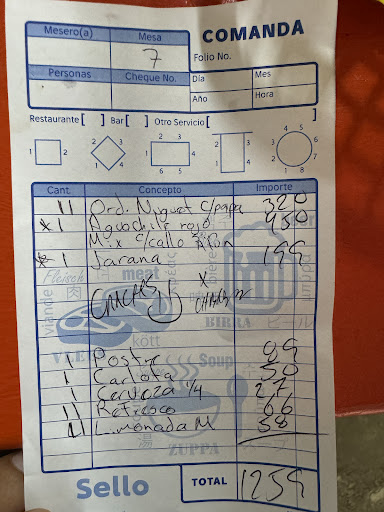 Mesero(a) Mesa COMANDA
7 Folio No.
Personas Cheque No. Día Mes
Año Hora
Restaurante [ ] Bar [ ] Otro Servicio [ ]
1 2
1 2 3 4
1 2 3 4 5 6
1 2 3 4
1 2 3 4 5 6 7 8
Cant. Concepto Importe
11 Ord. Nuguet c/papa 320
*1 Aguachile rojo 450
Mix c/callo
*1 Jarana 199
1 Postre 89
1 Carlota 50
1 Cerveza 1/4 27
11 Refresco 66
1 Limonada M 58
Fleisch
meat
viande
kött
BIRRA
Soup
ZUPPA
Sello TOTAL 1259